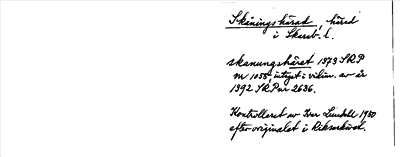 Skånings härad, härad
i Skarab. l.
skanungshäret 1373 SRP
nr 1055, intaget i vidim. av år
1392 SRP nr 2636.
Kontrollerat av Ivar Lundahl 1950
efter originalet i Riksarkivet.